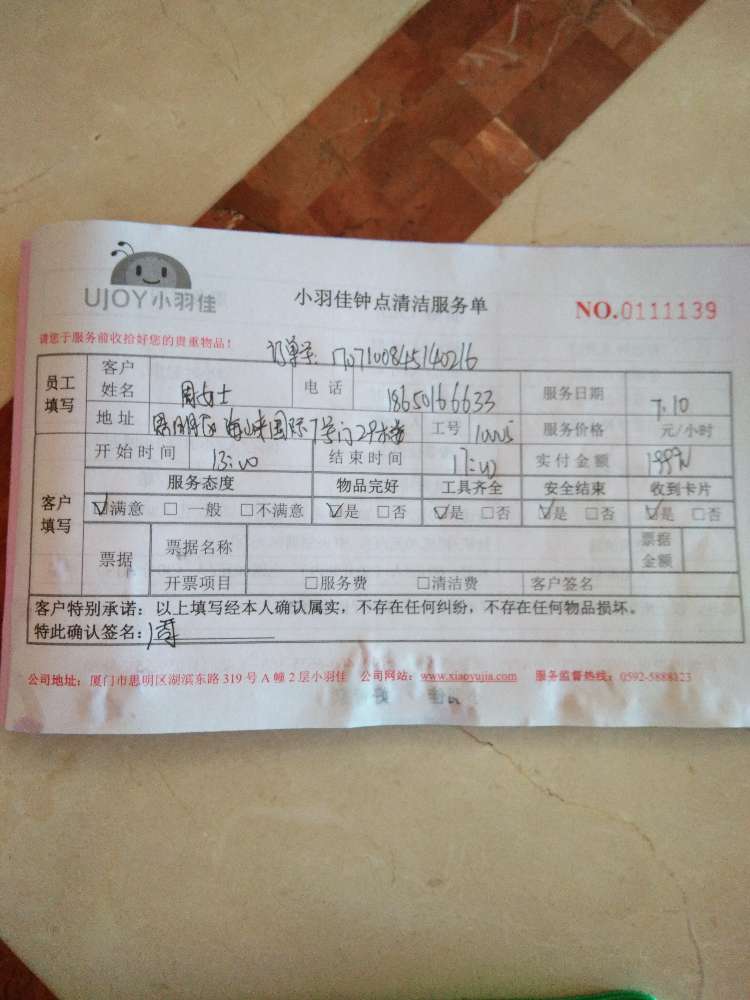 UJOY小羽佳
小羽佳钟点清洁服务单
NO.0111139
请您于服务前收拾好您的贵重物品！
订单号: 1707100845140216
员工填写 客户姓名 周女士 电话 18650166633 服务日期 7.10
地址 思明区 海峡国际7号门29楼 工号 10005 服务价格 元/小时
开始时间 13:00 结束时间 17:00 实付金额
客户填写 服务态度 物品完好 工具齐全 安全结束 收到卡片
☑满意 □一般 □不满意 ☑是 □否 ☑是 □否 ☑是 □否 ☑是 □否
票据 票据名称 票据金额
开票项目 □服务费 □清洁费 客户签名
客户特别承诺：以上填写经本人确认属实，不存在任何纠纷，不存在任何物品损坏。
特此确认签名：
公司地址：厦门市思明区湖滨东路319号A幢2层小羽佳 公司网站：www.xiaoyujia.com 服务监督热线：0592-5888123